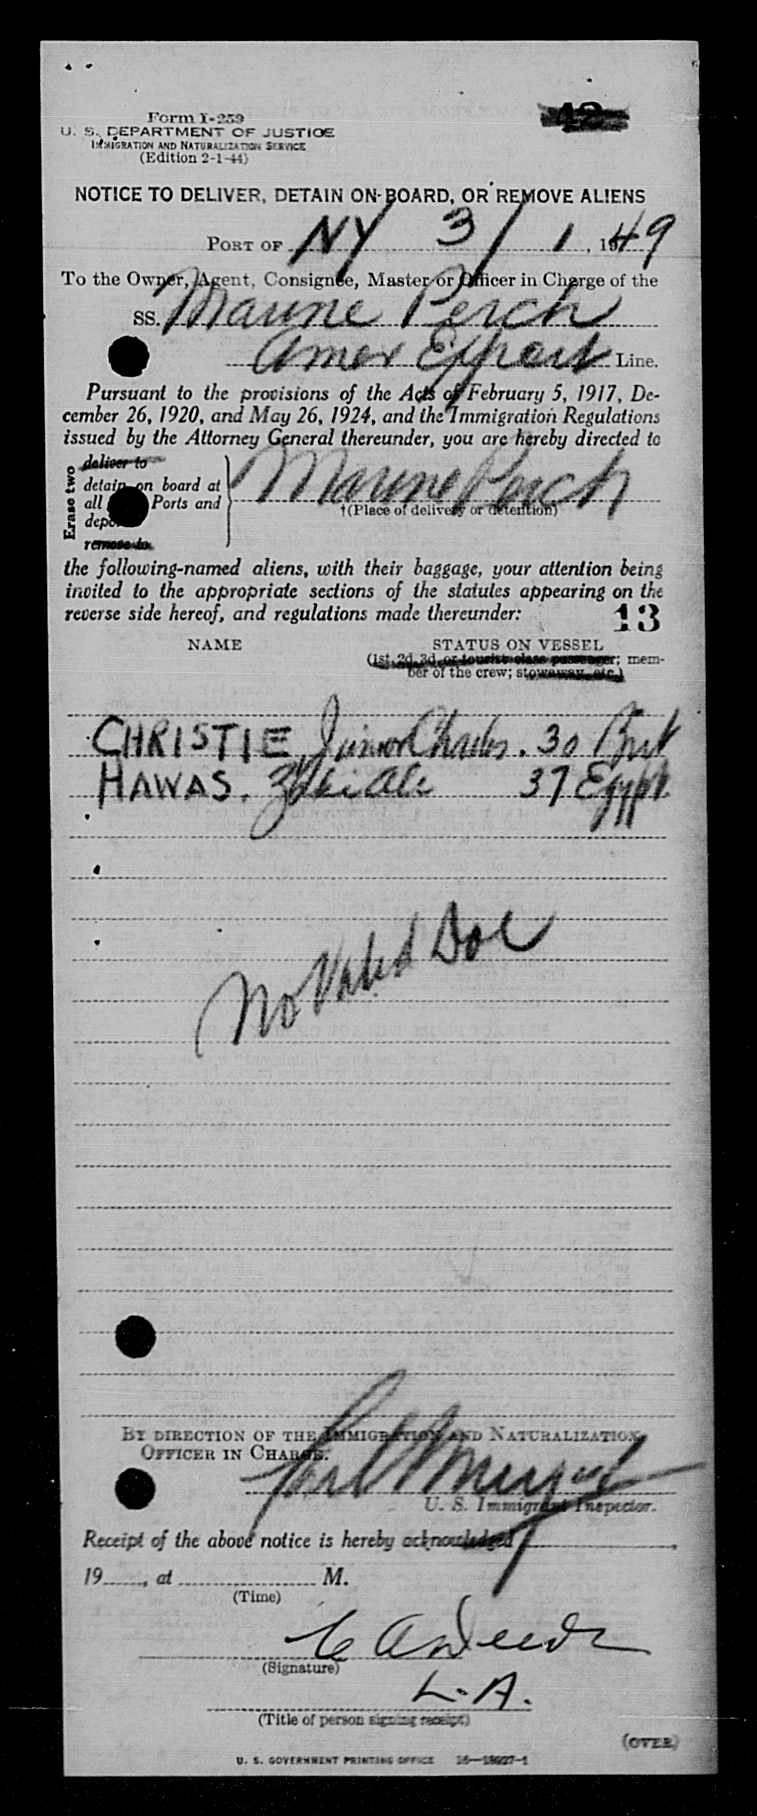 42
Form I-259
U. S. DEPARTMENT OF JUSTICE
IMMIGRATION AND NATURALIZATION SERVICE
(Edition 2-1-44)
NOTICE TO DELIVER, DETAIN ON BOARD, OR REMOVE ALIENS
PORT OF NY 3/1, 1949
To the Owner, Agent, Consignee, Master or Officer in Charge of the
SS. Marine Perch
Amer Export Line.
Pursuant to the provisions of the Acts of February 5, 1917, De-
cember 26, 1920, and May 26, 1924, and the Immigration Regulations
issued by the Attorney General thereunder, you are hereby directed to
Erase two
deliver to
detain on board at
all Ports and
remove to
Marine Perch
†(Place of delivery or detention)
the following-named aliens, with their baggage, your attention being
invited to the appropriate sections of the statutes appearing on the
reverse side hereof, and regulations made thereunder:
13
NAME STATUS ON VESSEL
(1st, 2d, 3d, or tourist class passenger; mem-
ber of the crew; stowaway, etc.)
CHRISTIE, Junior Charles. 30 Brit
HAWAS. Zaki Ali 37 Egypt.
No Valid Doc
BY DIRECTION OF THE IMMIGRATION AND NATURALIZATION
OFFICER IN CHARGE.
U. S. Immigrant Inspector.
Receipt of the above notice is hereby acknowledged
19 , at M.
(Time)
(Signature)
L.A.
(Title of person signing receipt)
(OVER)
U. S. GOVERNMENT PRINTING OFFICE 16—18027-1